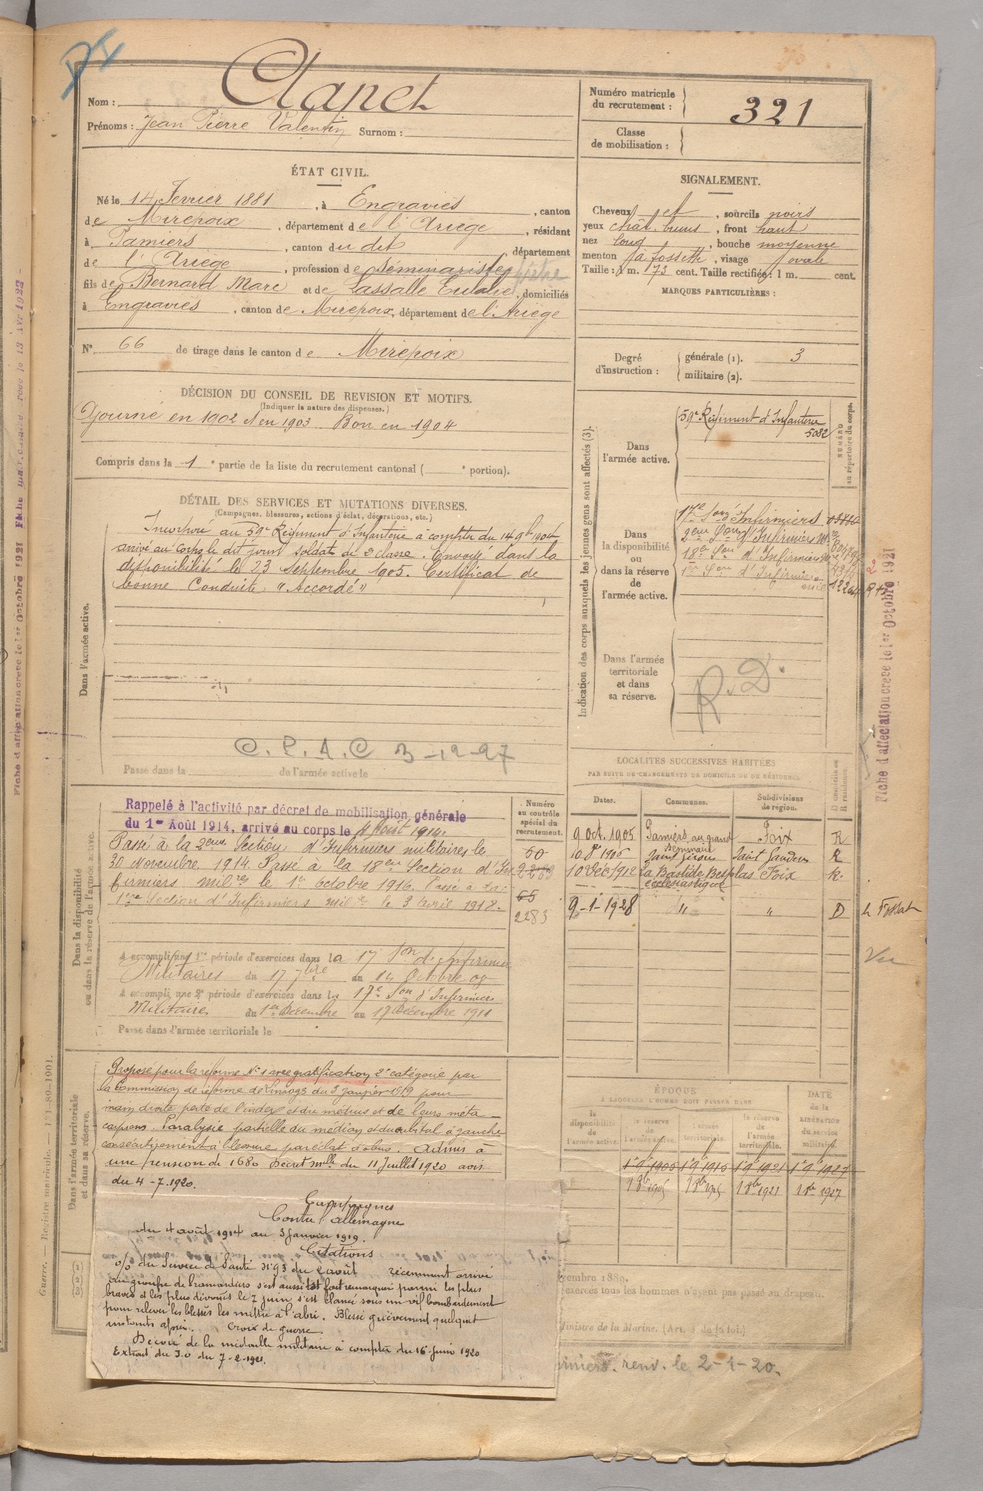 Nom : Clanet
Prénoms : Jean Pierre Valentin Surnom :
Numéro matricule du recrutement : 321
Classe de mobilisation :
ÉTAT CIVIL.
Né le 14 Fevrier 1881, à Engraviès, canton
de Mirepoix, département de l'Ariège, résidant
à Pamiers, canton du dit, département
de l'Ariège, profession de séminariste
fils de Bernard Marc et de Lassalle Eulalie, domiciliés
à Engraviès, canton de Mirepoix, département de l'Ariège
N° 66 de tirage dans le canton de Mirepoix
SIGNALEMENT.
Cheveux, sourcils noirs
yeux, front haut
nez long, bouche moyenne
menton à fossette, visage ovale
Taille : 1 m. 73 cent. Taille rectifiée, 1 m. cent.
MARQUES PARTICULIÈRES :
Degré d'instruction : générale (1). 3
militaire (2).
DÉCISION DU CONSEIL DE REVISION ET MOTIFS.
(Indiquer la nature des dispenses.)
Ajourné en 1902 et en 1903 Bon en 1904
Compris dans la 1e partie de la liste du recrutement cantonal ( e portion).
DÉTAIL DES SERVICES ET MUTATIONS DIVERSES.
(Campagnes, blessures, actions d'éclat, décorations, etc.)
Incorporé au 59e Régiment d'Infanterie à compter du 14 9bre 1904
arrivé au corps le dit jour soldat de 2e classe. Envoyé dans la
disponibilité le 23 Septembre 1905. Certificat de
bonne Conduite "Accordé"
Dans l'armée active.
C. P. A. C 3-12-27
Passé dans la de l'armée active le
Indication des corps auxquels les jeunes gens sont affectés (3).
NUMÉRO au répertoire du corps.
Dans l'armée active.
59e Régiment d'Infanterie
5032
Dans la disponibilité ou dans la réserve de l'armée active.
17e Son Infirmiers
2eme Son d'Infirmiers
18e Son d'Infirmiers
1re Son d'Infirmiers
Dans l'armée territoriale et dans sa réserve.
R. D.
Fiche d'affectation créée le 1er Octobre 1921
Dans la disponibilité ou dans la réserve de l'armée active.
Rappelé à l'activité par décret de mobilisation générale
du 1er Août 1914, arrivé au corps le 4 Aout 1914.
Passé à la 2eme Section d'Infirmiers militaires le
30 Novembre 1914. Passé à la 18eme Section d'In
firmiers milres le 1er octobre 1916. Passé à la
1ere Section d'Infirmiers milres le 3 Avril 1918.
Numéro au contrôle spécial du recrutement.
50
65
2283
A accompli une 1re période d'exercices dans la 17 Son d'infirmiers
Militaires du 17 7bre au 14 Octobre 09
A accompli une 2e période d'exercices dans la 17e Son d'Infirmiers
Militaires du 1er Décembre au 17 Décembre 1911
Passé dans l'armée territoriale le
LOCALITÉS SUCCESSIVES HABITÉES
PAR SUITE DE CHANGEMENTS DE DOMICILE OU DE RÉSIDENCE
Dates. Communes. Subdivisions de région.
9 oct. 1905 Pamiers, au grand Séminaire Foix R
Saint Girons Saint Gaudens R
10 Déc 1912 La Bastide Besplas Foix R.
ecclésiastique
9-1-1928 " " D
Dans l'armée territoriale et dans sa réserve.
Proposé pour la réforme N° 1 avec gratification 2e catégorie par
la Commission de réforme de Limoges du 3 janvier 1919 pour
main droite perte de l'index et du médius et de leurs méta
carpiens. Paralysie partielle du médian et du cubital à gauche
consécutivement à blessure par éclat d'obus. Admis à
une pension de 1680 Décret mlle du 11 Juillet 1920 avis
du 4-7.1920.
ÉPOQUE
À LAQUELLE L'HOMME DOIT PASSER DANS
DATE de la LIBÉRATION du service militaire.
la disponibilité de l'armée active. la réserve de l'armée active. l'armée territoriale. la réserve de l'armée territoriale.
1 9 1921 1 9 1927
1 8bre 1921 1 8bre 1927
Campagnes
Contre l'Allemagne
du 4 août 1914 au 3 Janvier 1919.
Citations
récemment arrivé
au groupe de brancardiers s'est aussitôt fait remarquer parmi les plus
braves et les plus dévoués le 7 juin s'est élancé sous un vif bombardement
pour relever les blessés les mettre à l'abri. Blessé grièvement quelques
instants après. Croix de guerre
Décoré de la médaille militaire à compter du 16 juin 1920
Extrait du J.O du 7-2-1921.
Ministre de la Marine. (Art. 4 de la loi.)
renv. le 2-1-20.